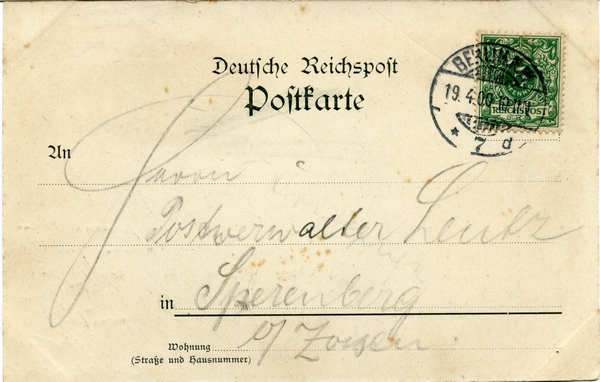 Deutsche Reichspost
Postkarte
BERLIN
19.4.00
7 d
REICHSPOST
An
Herrn
Postverwalter Lentz
in Sperenberg
b/ Zossen.
Wohnung
(Straße und Hausnummer)